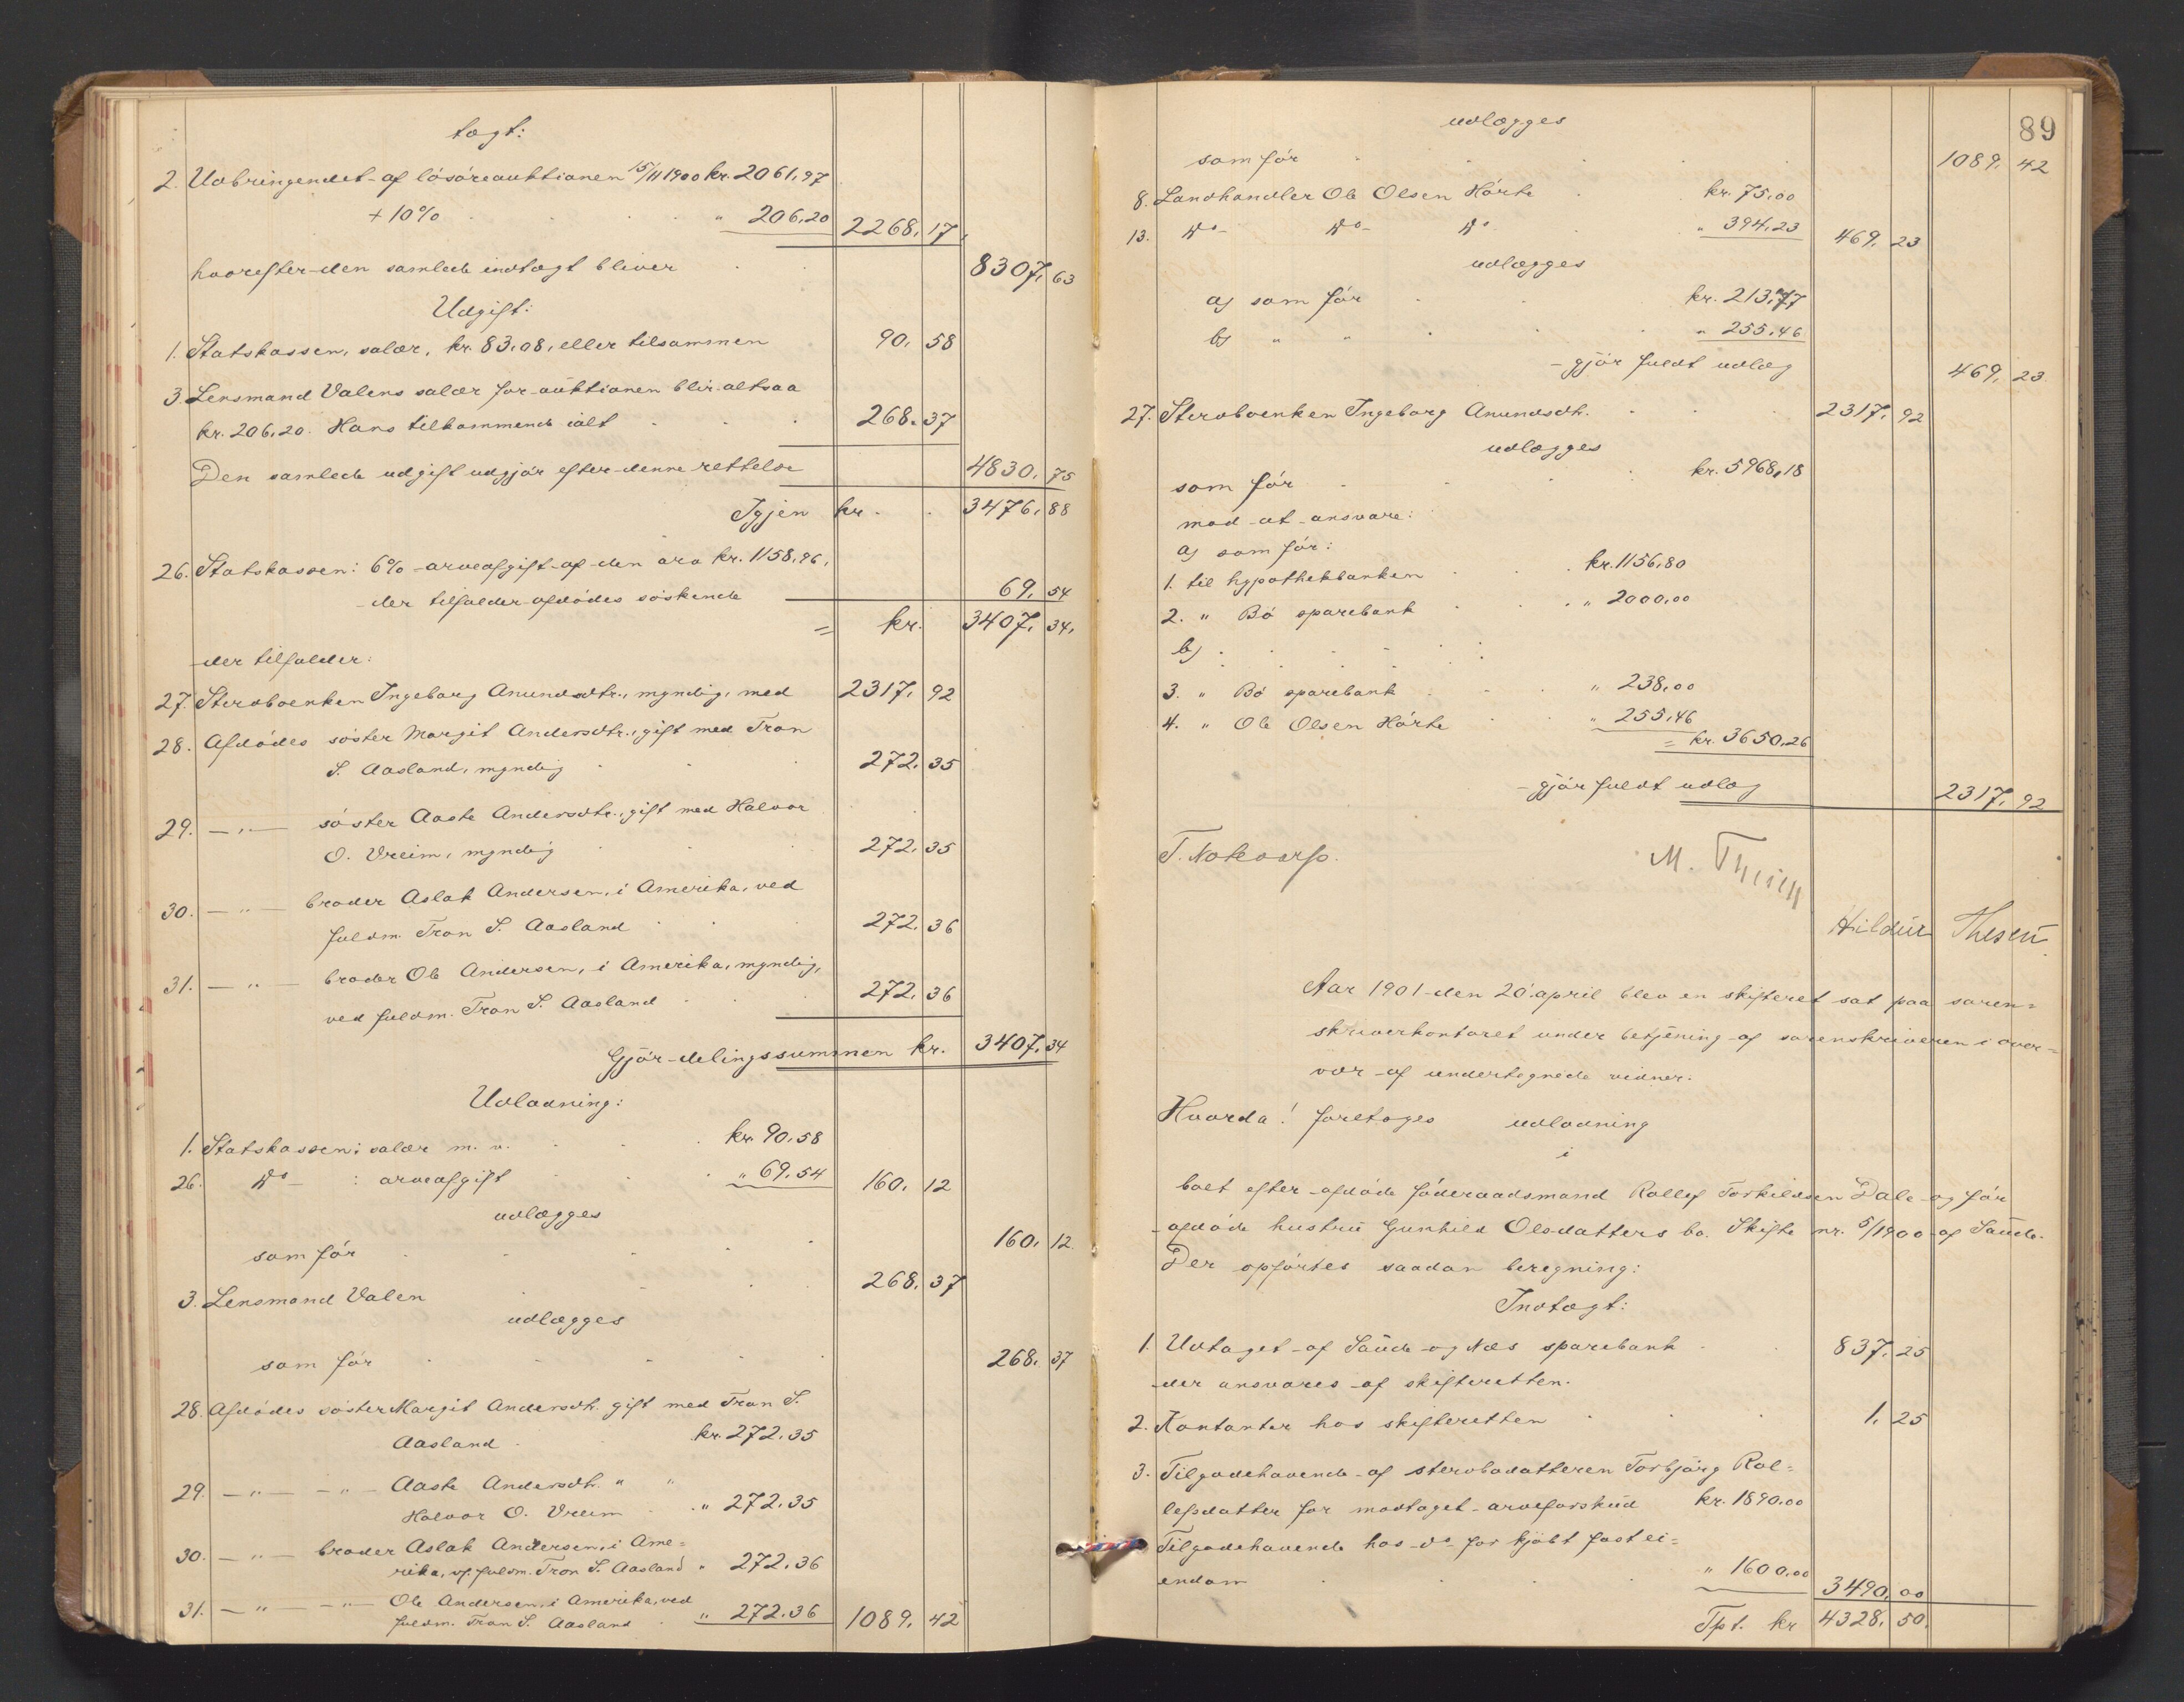 tægt:
2. Udbringendet af lösöreauktionen 15/11 1900 kr. 2061,97
+ 10% " 206,20 2268,17
hvorefter den samlede indtægt bliver 8307,63
Udgift:
1. Statskassen, salær, kr. 83,08, eller tilsammen 90,58
3. Lensmand Valens salær for auktionen blir altsaa
kr. 206,20. Hans tilkommende ialt 268,37
Den samlede udgift udgjör efter denne rettelse 4830,75
Igjen kr. 3476,88
26. Statskassen: 6% arveafgift af den arv kr. 1158,96,
der tilfalder afdödes söskende 69,54
= kr. 3407,34,
der tilfalder:
27. Stervboenken Ingeborg Anundsdtr., myndig, med 2317,92
28. Afdödes söster Margit Andersdtr., gift med Tron
S. Aasland, myndig 272,35
29. —"— söster Aaste Andersdtr., gift med Halvor
O. Vreim, myndig 272,35
30. —"— broder Aslak Andersen, i Amerika, ved
fuldm. Tron S. Aasland 272,36
31. —"— broder Ole Andersen, i Amerika, myndig,
ved fuldm. Tron S. Aasland 272,36
Gjör delingssummen kr. 3407,34
Udlodning:
1. Statskassen: salær m. v. kr. 90,58
26. Do : arveafgift " 69,54 160,12
udlægges
som för 160,12
3. Lensmand Valen 268,37
udlægges
som för 268,37
28. Afdödes söster Margit Andersdtr. gift med Tron S.
Aasland kr. 272,35
29. —"— —"— Aaste Andersdtr. " "
Halvor O. Vreim " 272,35
30. —"— broder Aslak Andersen, i Ame=
rika, v. fuldm. Tron S. Aasland " 272,36
31. —"— —"— Ole Andersen, i Amerika, ved
fuldm. Tron S. Aasland " 272,36 1089,42
89
udlægges
som för 1089,42
8. Landhandler Ole Olsen Hörte kr. 75,00
13. Do Do Do " 394,23 469,23
udlægges
a) som för kr. 213,77
b) " " " 255,46
gjör fuldt udlæg 469,23
27. Stervboenken Ingeborg Anundsdtr. 2317,92
udlægges
som för kr. 5968,18
mod at ansvare:
a) som för:
1. til hypothekbanken kr. 1156,80
2. " Bö sparebank " 2000,00
b)
3. " Bö sparebank " 238,00
4. " Ole Olsen Hörte " 255,46
= kr. 3650,26
gjör fuldt udlæg 2317,92
M. Thesen
Hildur Thesen
Aar 1901 den 20. april blev en skifteret sat paa soren=
skriverkontoret under betjening af sorenskriveren i over=
vær af undertegnede vidner.
Hvorda! foretoges udlodning
i
boet efter afdöde föderaadsmand Rollef Torkildsen Dale og för
afdöde hustru Gunhild Olsdatters bo. Skifte nr. 5/1900 af Saude.
Der opförtes saadan beregning:
Indtægt:
1. Udtaget af Saude og Næs sparebank 837,25
der ansvares af skifteretten.
2. Kontanter hos skifteretten 1,25
3. Tilgodehavende af stervbodatteren Torbjörg Rol=
lefsdatter for modtaget arveforskud kr. 1890,00
Tilgodehavende hos do for kjöbt fast ei=
endom " 1600,00 3490,00
Tpt. kr 4328,50.